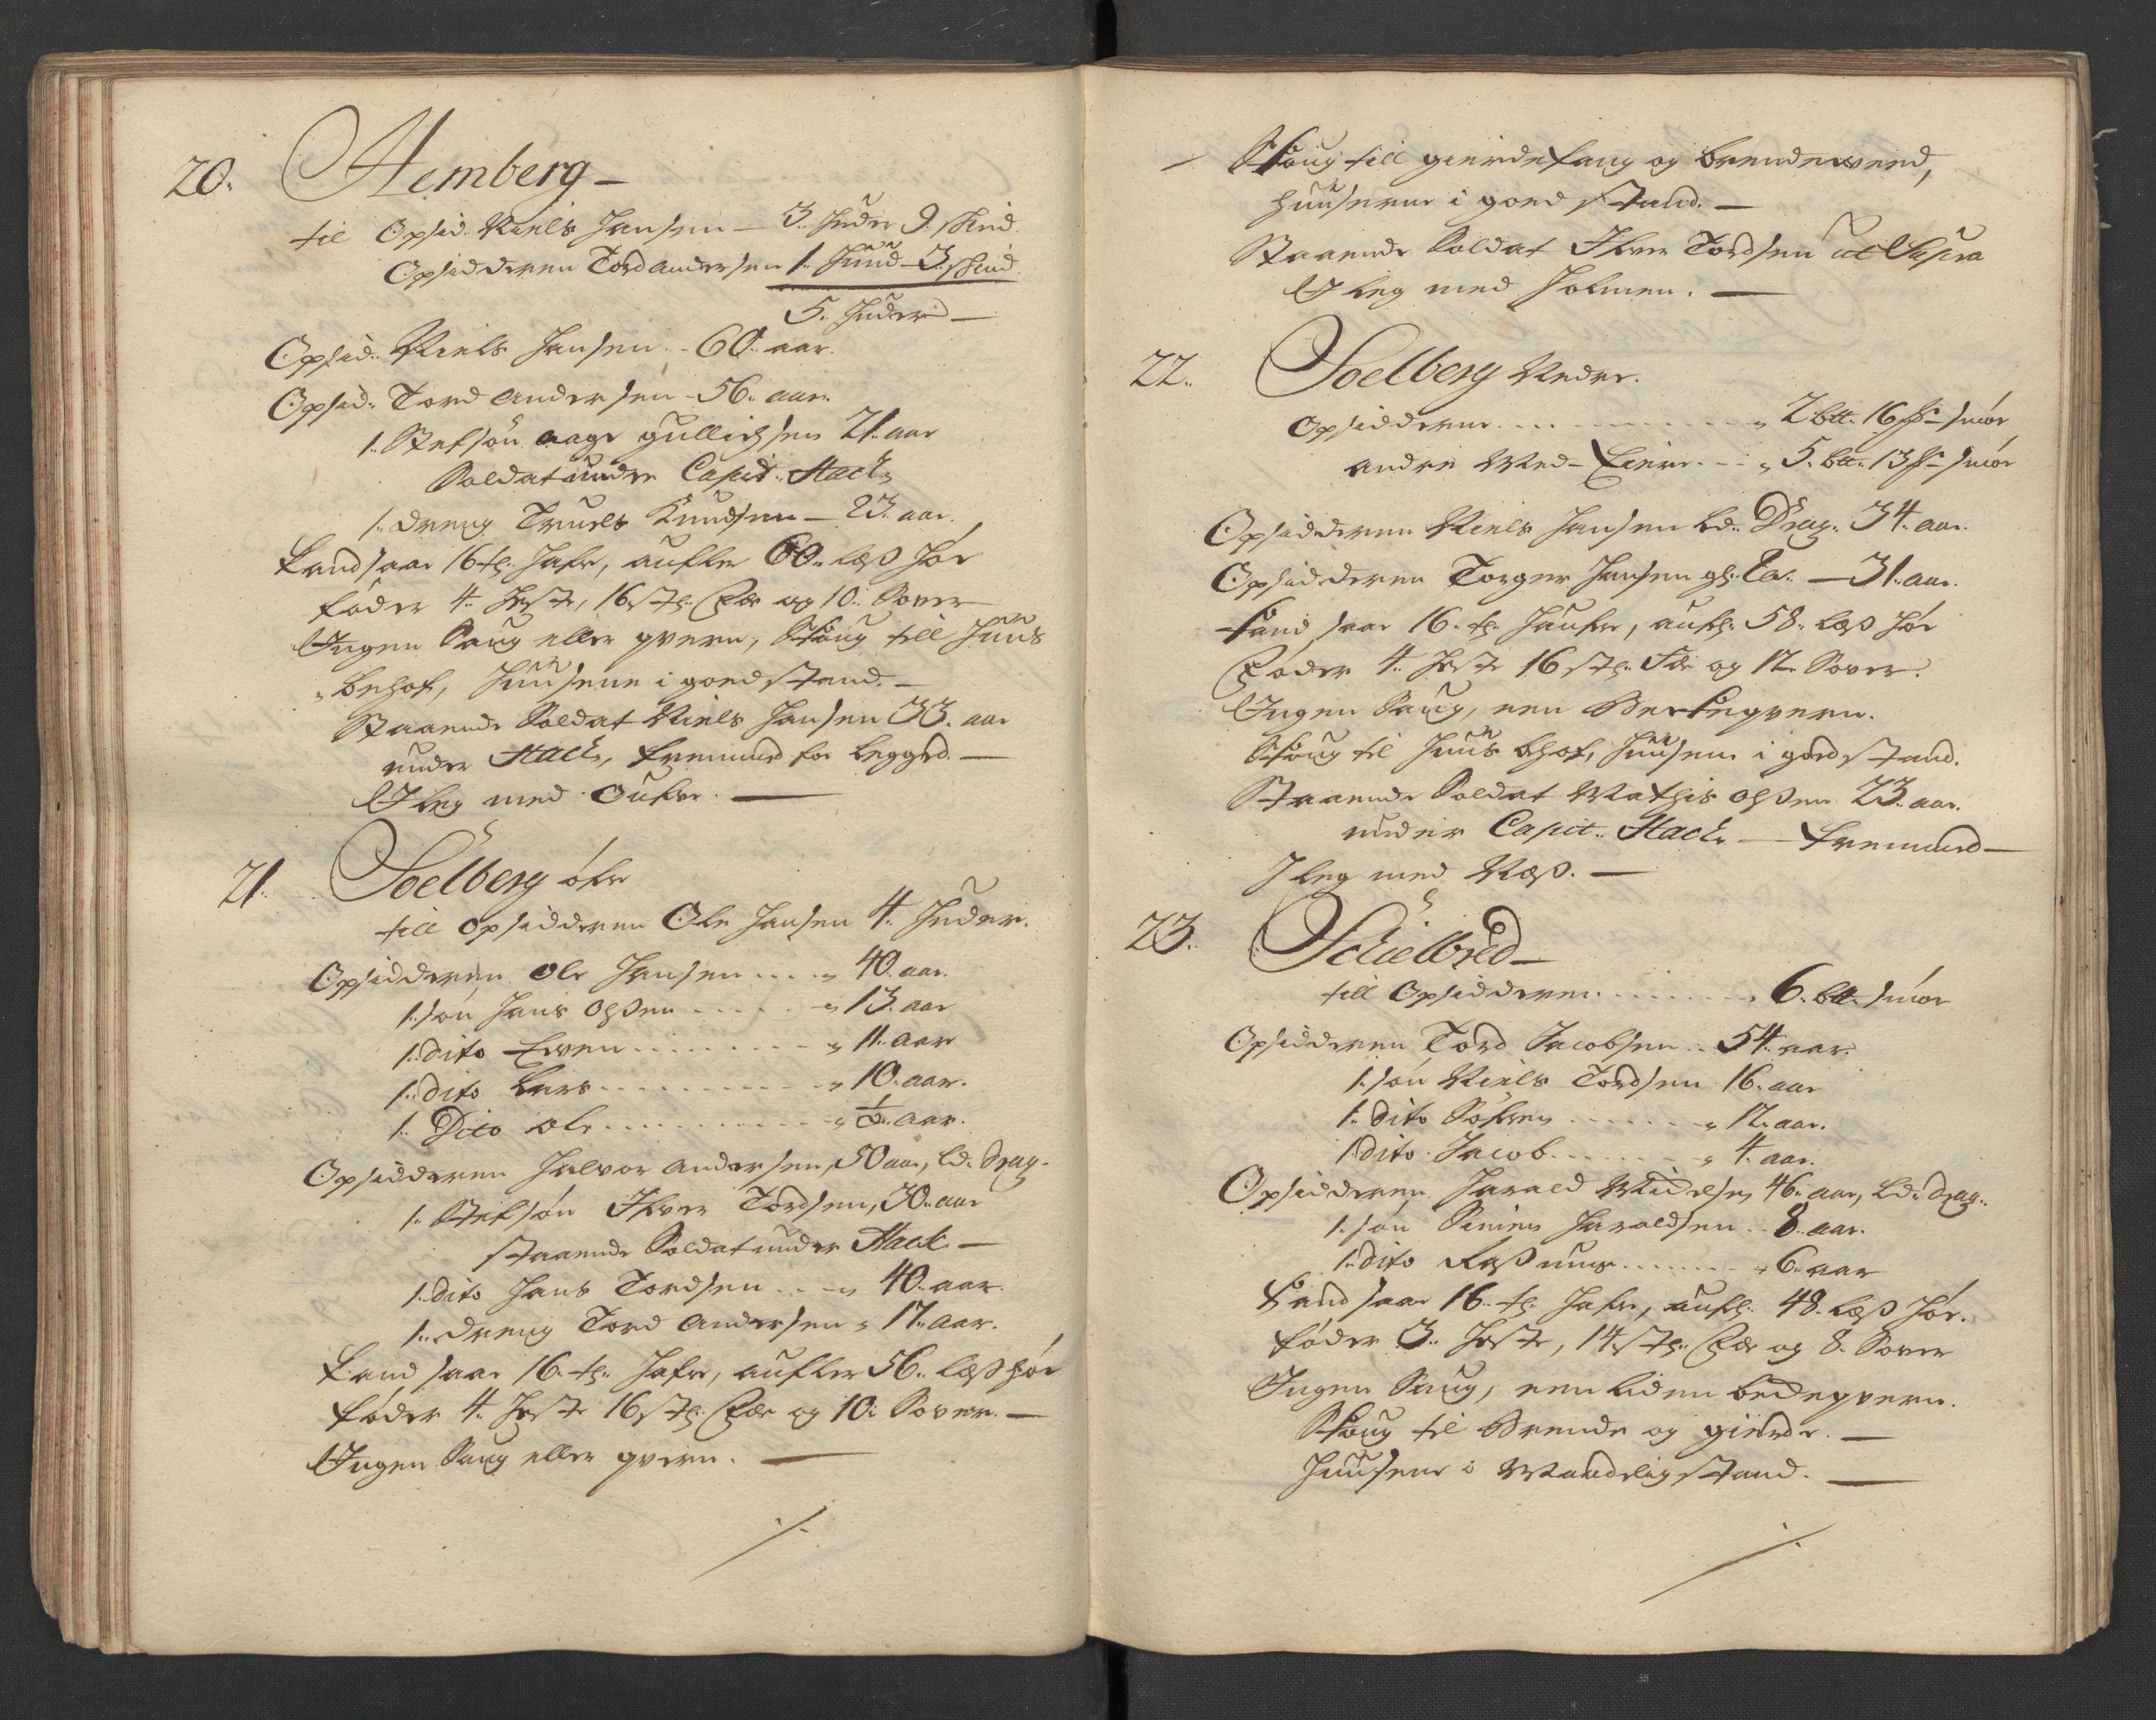 20. Hemberg –
til Opsid. Niels Hansen – 3. Huder 9. skind
Opsidderen Tord Andersen 1. Huud 3 skind
5. Huder –
Opsid. Niels Hansen – 60. aar.
Opsid. Tord Andersen – 56. aar.
1. Stefsøn Aage Gullichsen 21. aar
Soldat under Capit. Hack
1. dreng Truels Knudsen – 23. aar.
kand saae 16 tr. Hafr, aufler 60. læs Høe
føder 4. Heste, 16 st. Fæe og 10. Sover
Ingen Saug eller qvern, Skoug till Huus
behof, Huusene i goed stand. –
Staaende Soldat Niels Hansen 33. aar
under Hack, fremmed for legged. –
I leg med Oufve. –
21. Soelberg øfre
till opsidderen Ole Hansen 4. Huder.
Opsidderen Ole Hansen .... 40. aar.
1. søn Hans Olsen ..... 13. aar
1. dito Even ........ 11. aar
1. dito Lars ......... 10. aar.
1. Dito Ole .......... aar.
Opsidderen Halvor Andersen, 50 aar, Ld. drag.
1. Stefsøn Iver Tordsen, 30. aar
staaende Soldat under Hack –
1. dito Hans Tordsen ... 40. aar.
1. dreng Tord Andersen 17. aar.
kand saae 16. tr. Hafre, aufler 56. læs høe
føder 4. Heste 16 st. Fæe og 10. Sover. –
Ingen Saug eller qvern. –
./.
Skoug till gierdefang og brendeveed,
Huuserne i goed stand. –
Staaende Soldat Iver Tordsen ut Supra
I leg med Holmen. –
22. Soelberg Nedre.
Opsidderne ........ 2 btt. 16 smør
andre Med-Eiere ... 5. btt. 13 smør
Opsidderen Niels Hansen Ld. Drag. 34. aar.
Opsidderen Torger Hansen gl. – 31. aar.
kand saae 16. tr. Haufre, aufl. 58. læs høe
Føder 4. Heste 16 st. Fæ og 12 Sover.
Ingen Saug, een Beckeqvern.
Skoug til Huus behof, Huusene i goed stand.
Staaende Soldat Mathis Olsen 23. aar.
under Capit. Hack – fremmed –
I leg med Næs. –
23. Schielbred –
till Opsidderen ....... 6. btt. smør
Opsidderen Tord Jacobsen .. 54. aar.
1. søn Niels Tordsen 16. aar
1. dito Søfren ...... 12. aar.
1 dito Jacob ....... 4. aar.
Opsidderen Harald 46. aar, Ld. drag.
1. søn Simen Haraldsen .. 8. aar.
1. dito Rasmus ....... 6. aar
kand saae 16. tr. Hafre, aufl. 48. læs Høe.
føder 3. Heste, 14 st. Fæe og 8. Sover
Ingen Saug, een liden beckeqvern.
Skoug til Brende og gierde. –
Huusene i Maadelig stand. –
./.